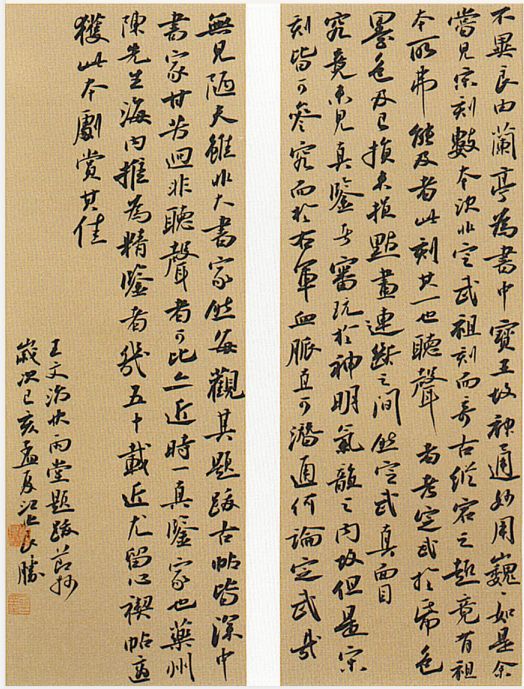 不異良由蘭亭為書中寶王故神通妙用巍〻如是余
嘗見宋刻數本決非定武祖刻而奇古縱宕之趣竟有祖
本所弗能及者此刻其一也聽聲者考定武於紙色
墨色及已損未損點畫連斷之間然定武真面目
究竟未見真鑒者審玩於神明氣韻之內故但是宋
刻皆可參究而於右軍血脈直可潛通何論定武哉
無見陋夫雖非大書家然每觀其題跋古帖皆深中
書家甘苦迥非聽聲者可比亦近時一真鑒家也藥州
陳先生海內推為精鑒者幾五十載近尤留心禊帖適
獲此本劇賞其佳
王文治快雨堂題跋節抄
歲次己亥孟夏